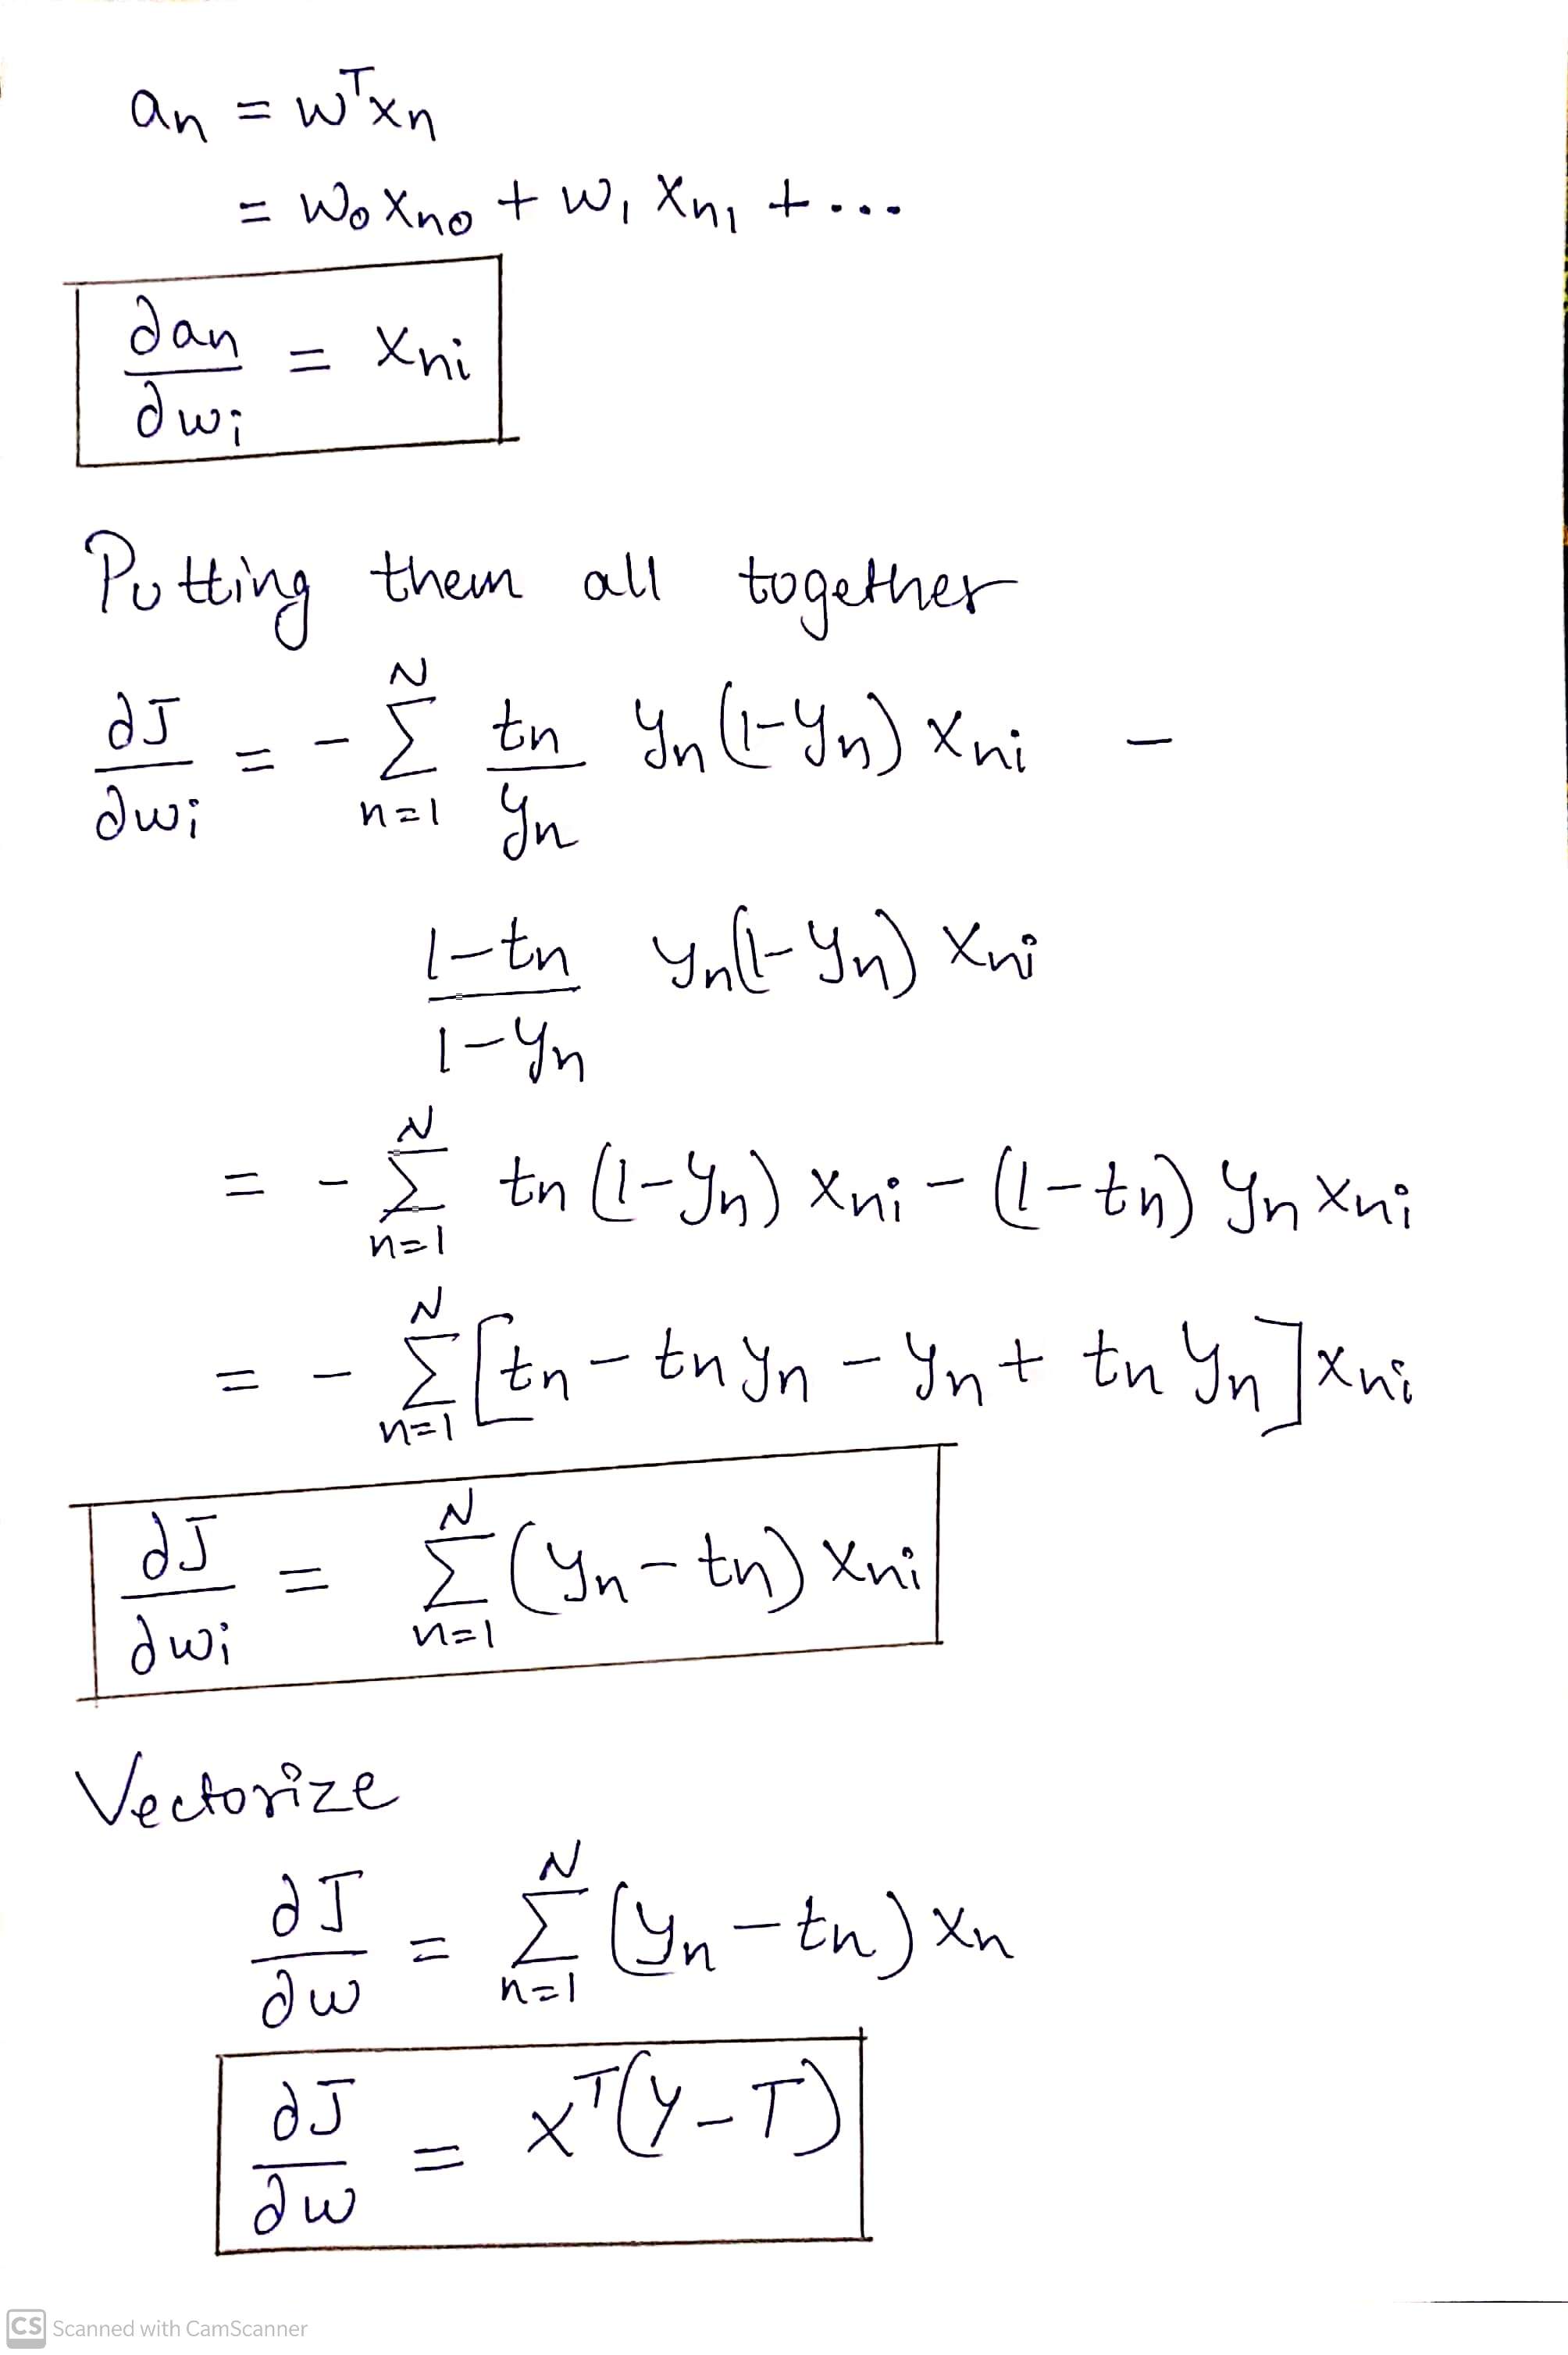 an = wᵀxn
= w₀ xn₀ + w₁ xn₁ + ...
∂an/∂wi = xni
Putting them all together
∂J/∂wi = - Σ_{n=1}^{N} tn/yn yn(1-yn) xni -
(1-tn)/(1-yn) yn(1-yn) xni
= - Σ_{n=1}^{N} tn(1-yn) xni - (1-tn) yn xni
= - Σ_{n=1}^{N} [tn - tn yn - yn + tn yn] xni
∂J/∂wi = Σ_{n=1}^{N} (yn - tn) xni
Vectorize
∂J/∂w = Σ_{n=1}^{N} (yn - tn) xn
∂J/∂w = xᵀ(Y-T)
CS Scanned with CamScanner